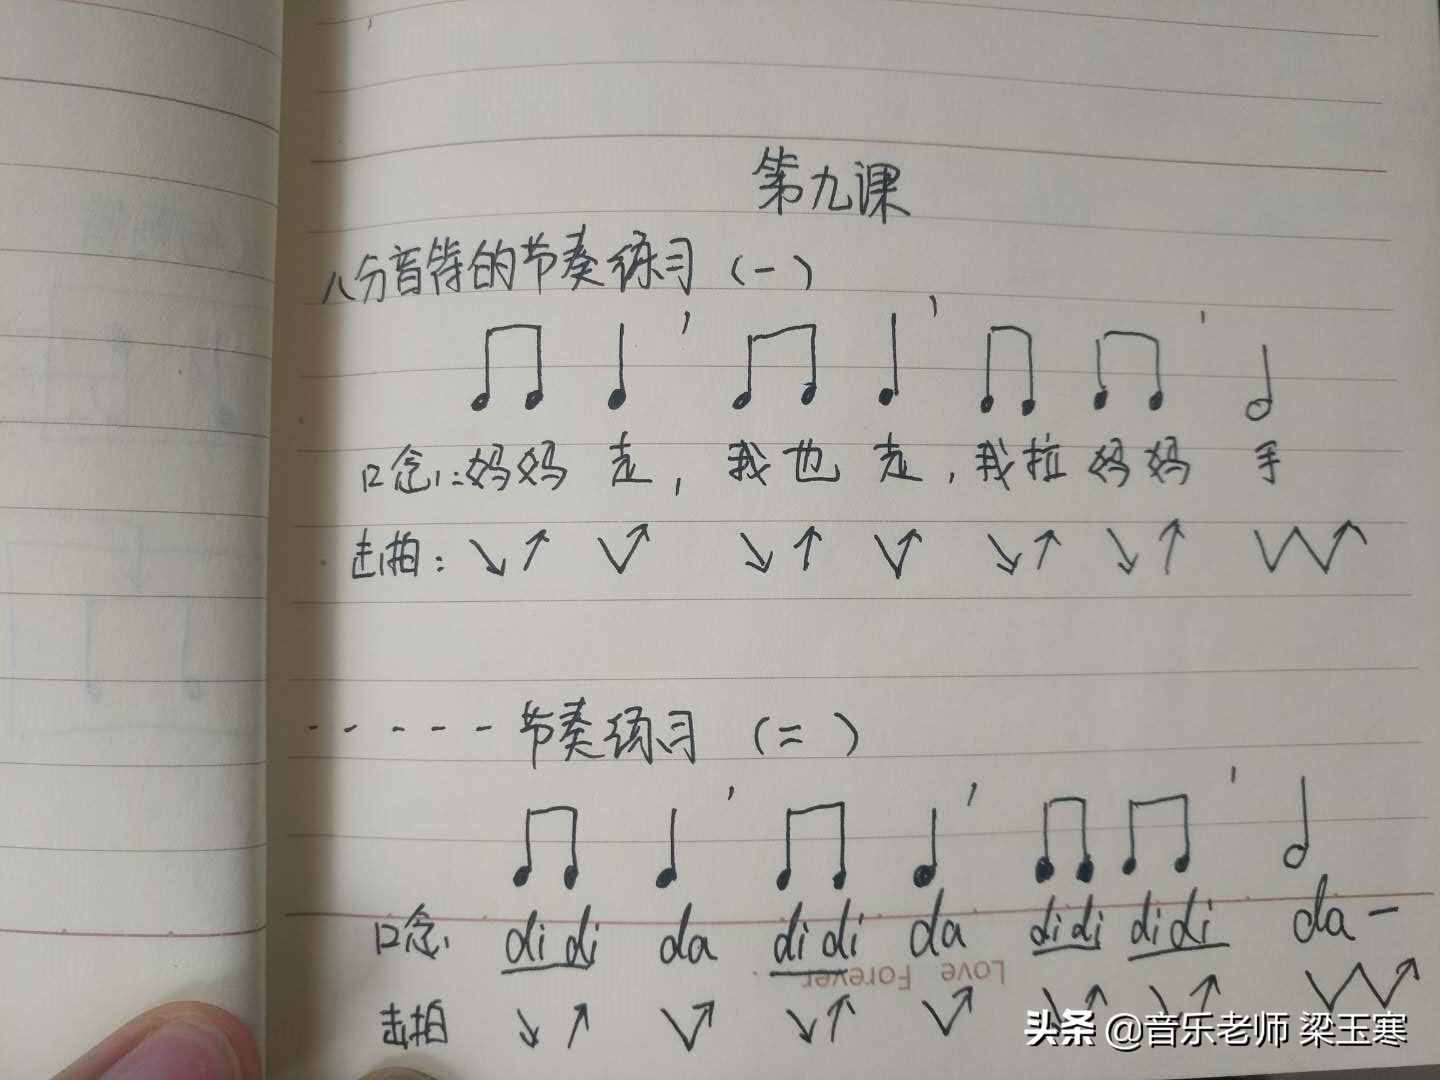 第九课
八分音符的节奏练习（一）
口念：妈妈 走，我也 走，我拉妈妈 手
击拍：
- - - - - 节奏练习（二）
口念： di di da di di da di di di di da -
Love Forever
击拍
头条 @音乐老师 梁玉寒